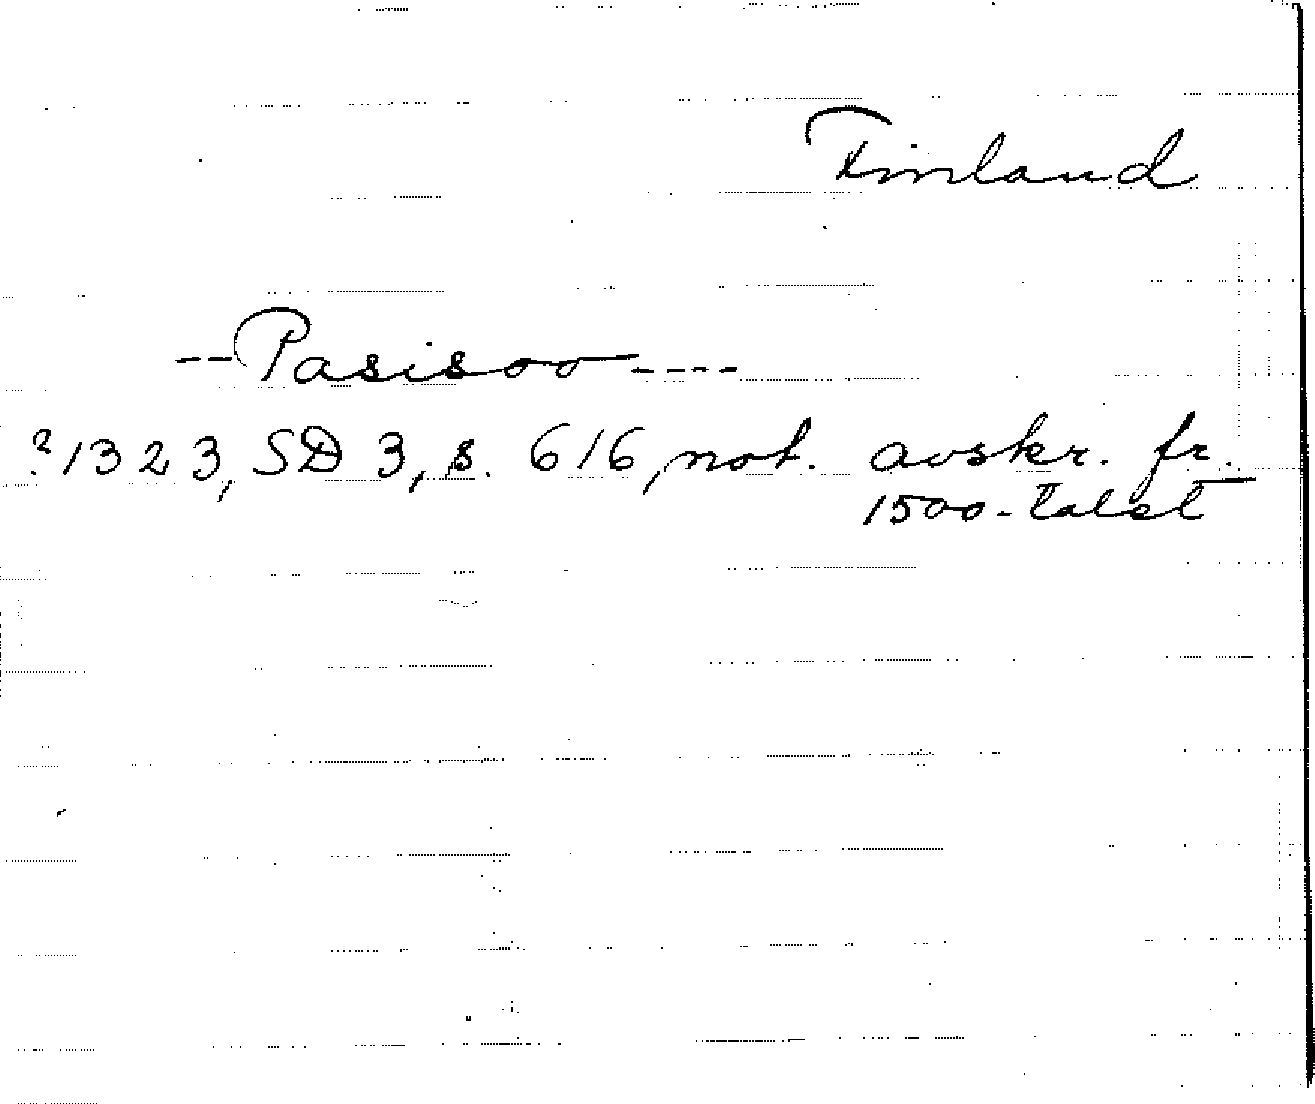 Finland
--Pasisoo----
?1323, SD 3, s. 616, not. avskr. fr.
1500-talet